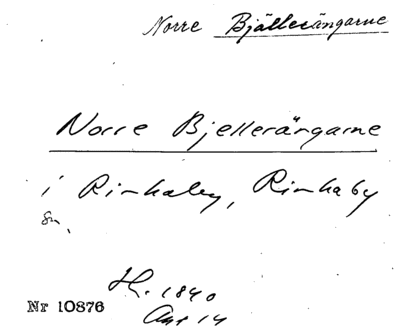 Norre Bjällerängarne
Norre Bjellerängarne
i Rinkaby, Rinkaby
sn.
H. 1840
Akt 14
Nr 10876